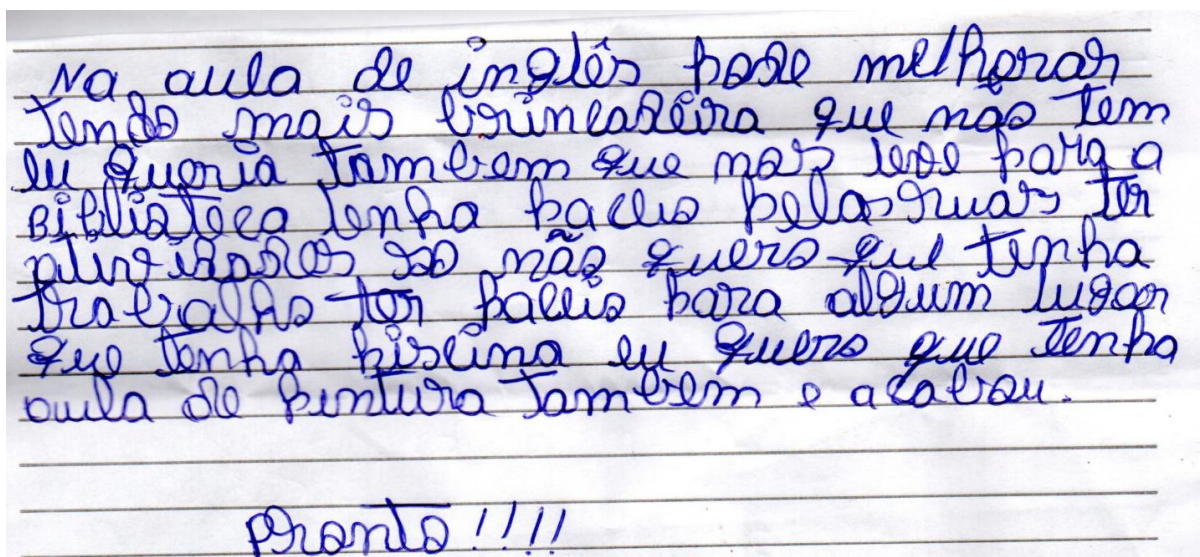 Na aula de inglês pode melhorar
tendo mais brincadeira que não tem
eu queria tambem que nos leve para a
biblioteca tenha paceio pelas ruas ter
atividades so não quero que tenha
trabalho ter paceio para algum lugar
que tenha piscina eu quero que tenha
aula de pintura tambem e acabou.
Pronto!!!!